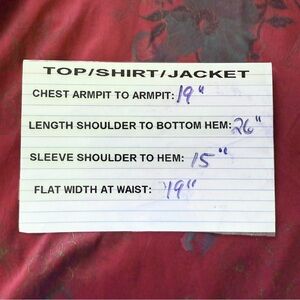 TOP/SHIRT/JACKET
CHEST ARMPIT TO ARMPIT: 19"
LENGTH SHOULDER TO BOTTOM HEM: 26"
SLEEVE SHOULDER TO HEM: 15"
FLAT WIDTH AT WAIST: 19"